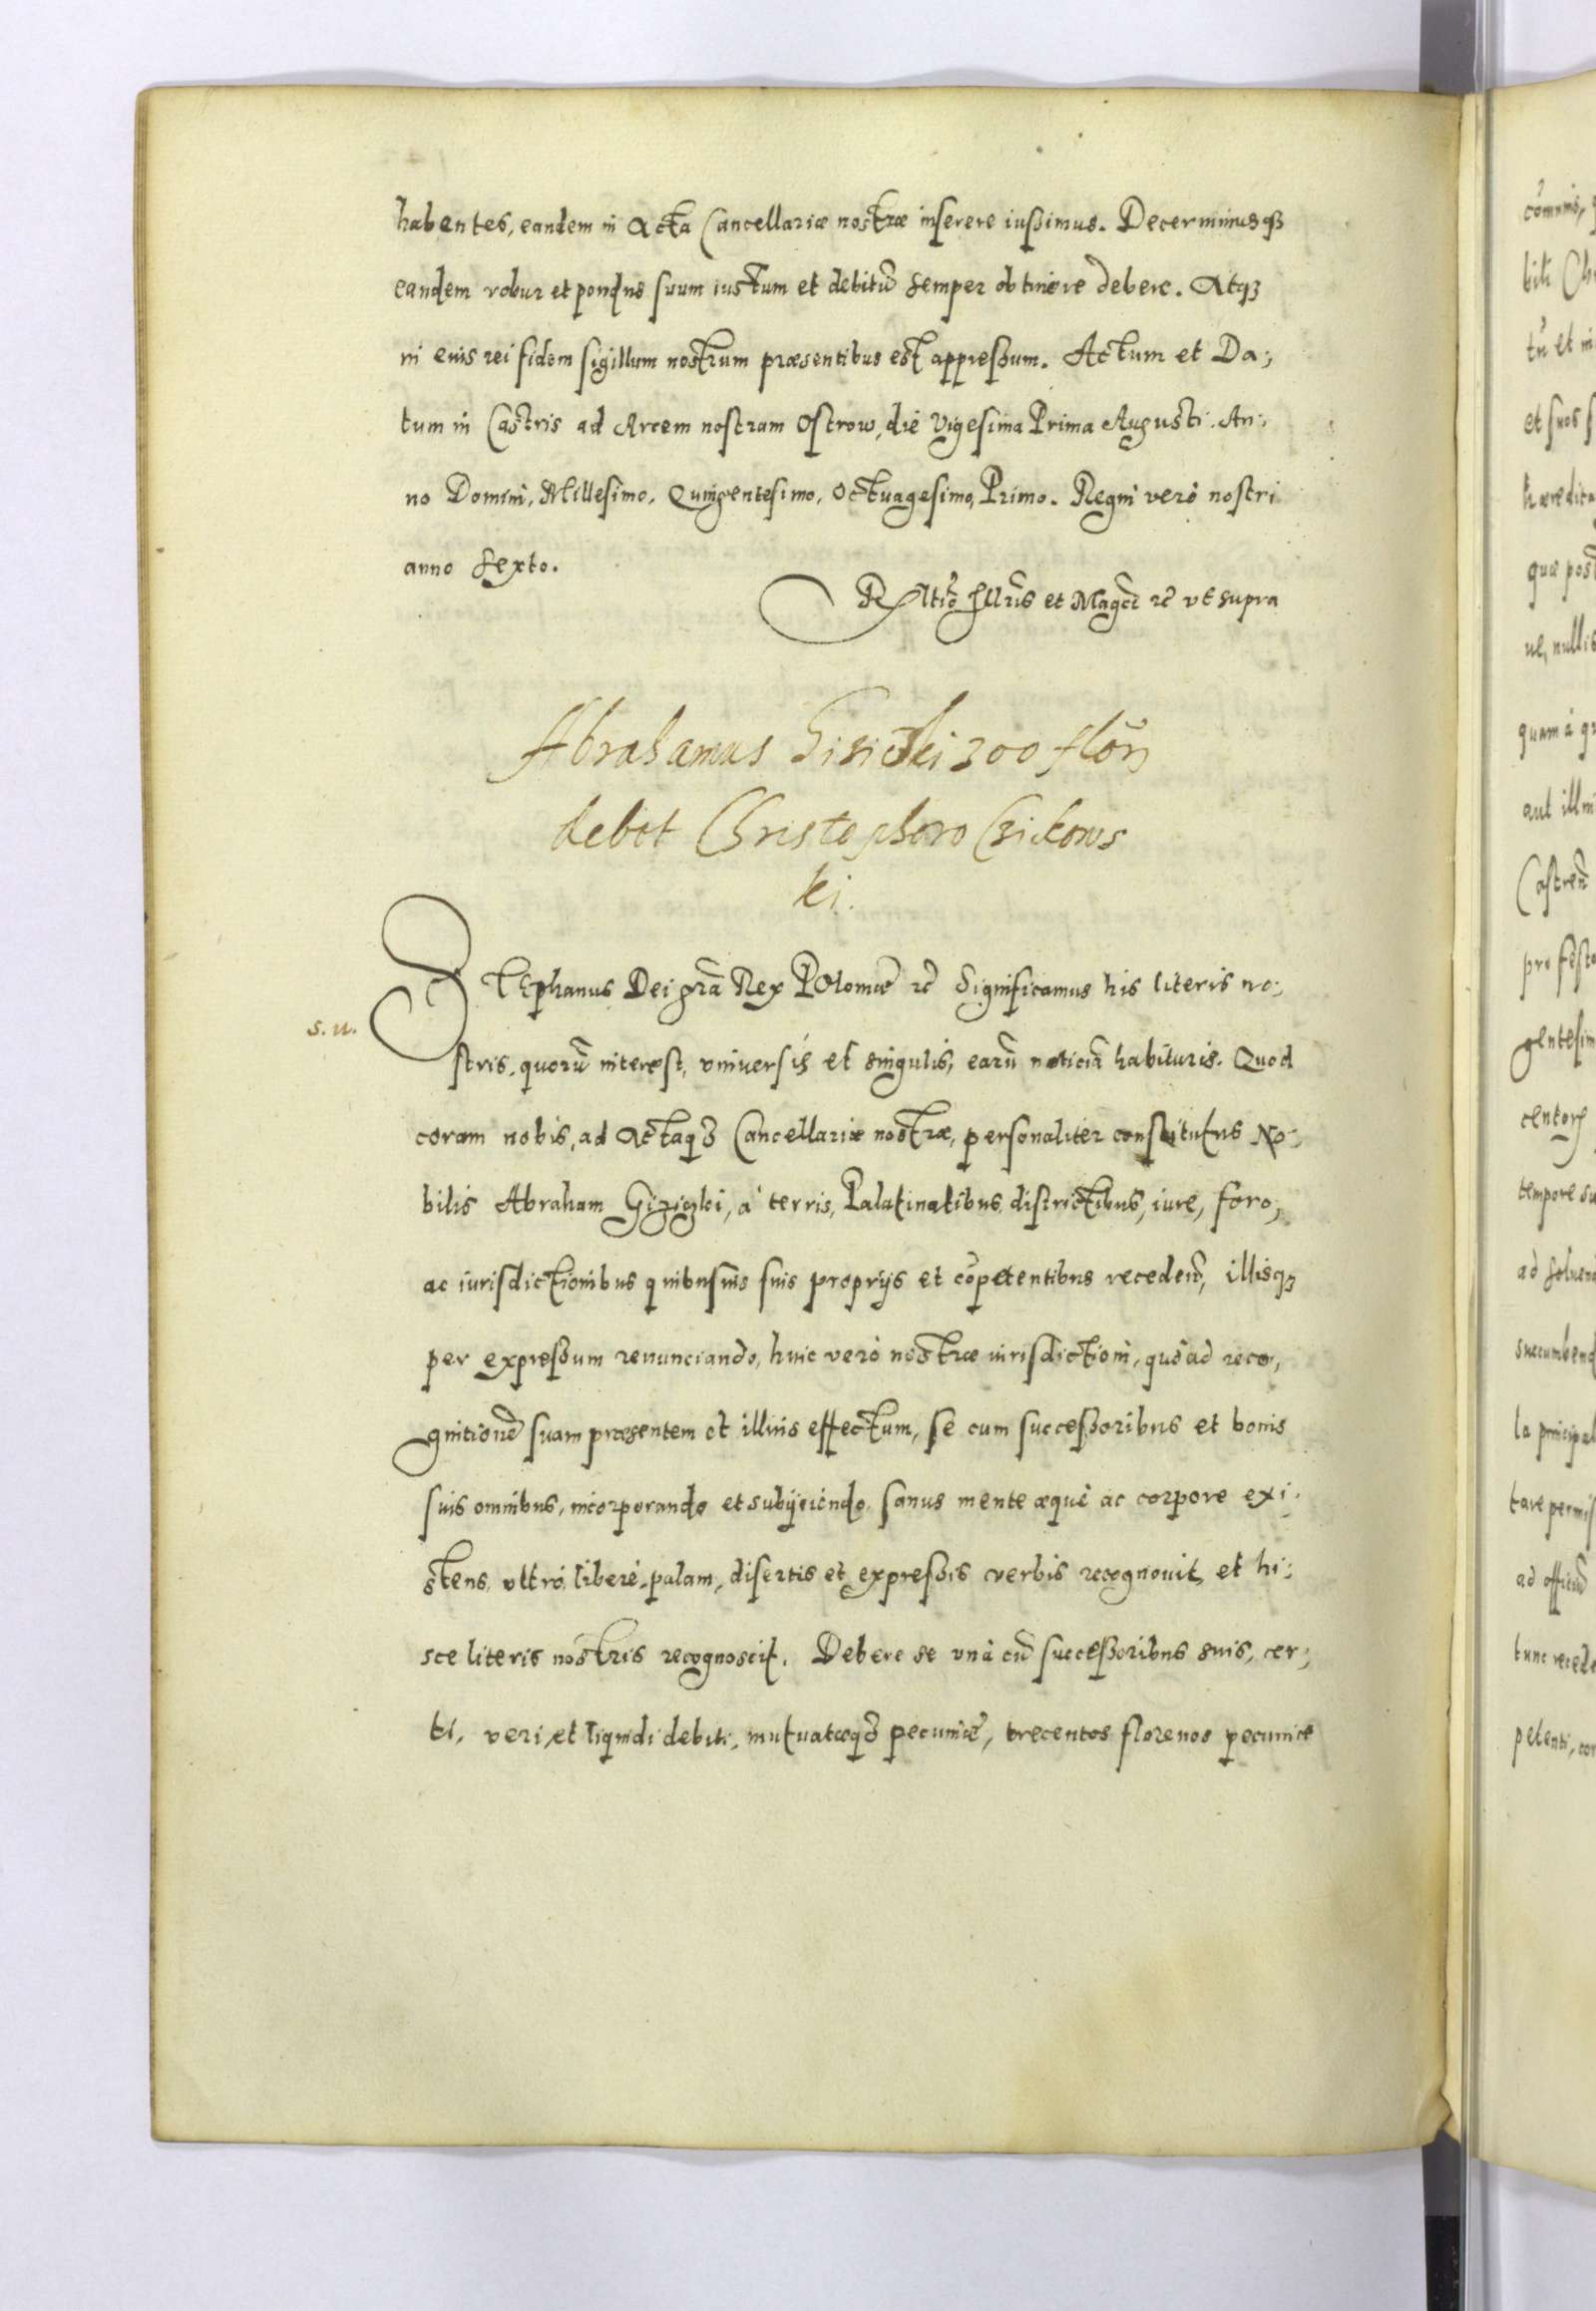 habentes, eandem in Acta Cancellariæ nostræ inserere iussimus. Decernimusq₃
eandem robur et pondus suum iustum et debitũ semper obtinere debere. Atq₃
in euis rei fidem sigillum nostrum præsentibus est appressum. Actum et Da;
tum in Castris ad Arcem nostram Ostrow, die Vigesima Prima Augusti. An;
no Domini, Millesimo, Quingentesimo, Octuagesimo, Primo. Regni verò nostri
anno Sexto.
Rltio Illris et Magci rc̃ vt supra
Abrahamus Gisicki 300 florẽ
debet Christophoro Czikows
ki.
Stephanus Dei grã Rex Poloniæ rc̃ Significamus his literis no;
s. u.
stris, quorũ interest, vniuersis et singulis, earũ noticiã habituris. Quod
coram nobis, ad Actaq₃ Cancellariæ nostræ, personaliter constitutus No;
bilis Abraham Giziczki, à terris, Palatinatibus, districtibus, iure, foro,
ac iurisdictionibus quibusuis suis proprijs et cõpetentibus recedẽñ, illisq₃
per expressum renunciando, huic verò nostræ iurisdictioni, quò ad reco,
gnitionẽ suam præsentem et illius effectum, se cum successoribus et bonis
suis omnibus, incorporando et subijciendo, sanus mente æquè ac corpore exi;
stens, vltrò, liberè, palam, disertis et expressis verbis recognouit, et hi;
sce literis nostris recognoscit. Debere se vnà cũ successoribus suis, cer;
ti, veri, et liquidi debiti, mutuatæq₃ pecuniæ, trecentos florenos pecuniæ